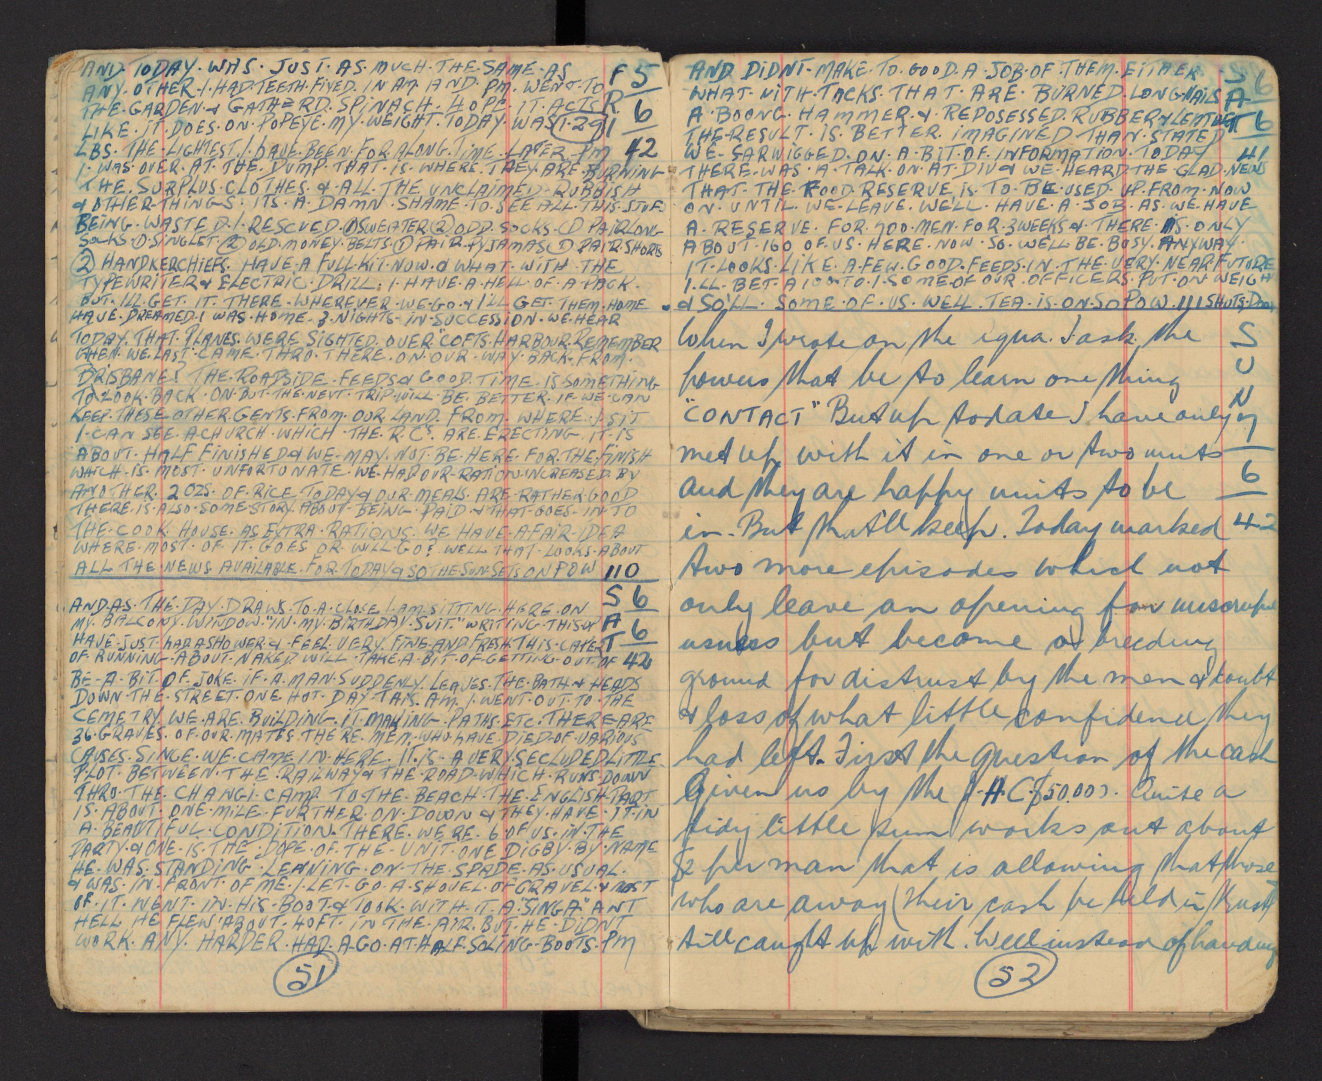 AND TODAY. WAS. JUST. AS. MUCH. THE. SAME. AS F 5
ANY. OTHER. I. HAD. TEETH. FIXED. IN AM. AND. PM. WENT. TO R
THE. GARDEN. & GATHERD. SPINACH. HOPE. IT. ACTS I 6
LIKE. IT. DOES. ON. POPEYE. MY. WEIGHT. TODAY. WAS 129
LBS. THE. LIGHTEST. I. HAVE. BEEN. FOR. A LONG. TIME. LATER. PM 42
I. WAS. OVER. AT. THE. DUMP. THAT. IS. WHERE. THEY. ARE. BURNING
THE. SURPLUS. CLOTHES. & ALL. THE. UNCLAIMED. RUBBISH
& OTHER THINGS. ITS. A. DAMN. SHAME. TO. SEE. ALL. THIS. STUFF
BEING. WASTED. I. RESCUED. ① SWEATER ② ODD. SOCKS. ① PAIR LONG
SOCKS. ① SINGLET. ② OLD. MONEY. BELTS ① PAIR. PYJAMAS ① PAIR. SHORTS
② HANDKERCHIEFS. HAVE. A FULL. KIT. NOW. & WHAT. WITH. THE
TYPEWRITER & ELECTRIC. DRILL. I. HAVE. A. HELL. OF A. PACK.
BUT. ILL. GET. IT. THERE. WHEREVER. WE. GO. & ILL. GET. THEM. HOME
HAVE. DREAMED. I WAS. HOME. 3. NIGHTS. IN. SUCCESSION. WE. HEAR
TODAY. THAT. PLANES. WERE. SIGHTED. OVER COFFS. HARBOUR. REMEMBER
WHEN. WE. LAST. CAME. THRO. THERE. ON. OUR. WAY. BACK. FROM
BRISBANE? THE. ROADSIDE. FEEDS & GOOD. TIME. IS. SOMETHING
TO LOOK. BACK. ON. BUT. THE. NEXT. TRIP. WILL. BE. BETTER. IF WE. CAN
KEEP. THESE. OTHER GENTS. FROM. OUR LAND. FROM. WHERE. I SIT
I. CAN. SEE. A CHURCH. WHICH. THE. R.C'S. ARE. ERECTING. IT. IS
ABOUT. HALF FINISHED & WE. MAY. NOT. BE. HERE. FOR. THE. FINISH
WHICH. IS. MOST. UNFORTUNATE. WE. HAD. OUR. RATION. INCREASED. BY
ANOTHER. 2 OZS. OF. RICE. TODAY & OUR. MEALS. ARE. RATHER. GOOD
THERE. IS. ALSO. SOME. STORY. ABOUT. BEING. PAID. & THAT. GOES. IN. TO
THE. COOK. HOUSE. AS. EXTRA. RATIONS. WE. HAVE. A FAIR. IDEA
WHERE. MOST. OF. IT. GOES. OR. WILL. GO? WELL THAT. LOOKS. ABOUT
ALL. THE. NEWS. AVAILABLE. FOR. TODAY & SO. THE. SUN. SETS. ON POW 110
AND. AS. THE. DAY. DRAWS. TO. A. CLOSE. I AM. SITTING. HERE. ON S 6
MY. BALCONY. WINDOW. "IN. MY. BIRTHDAY. SUIT." WRITING. THIS A
HAVE. JUST. HAD. A SHOWER & FEEL. VERY. FINE. AND FRESH. THIS. CAPER T 6
OF. RUNNING. ABOUT. NAKED. WILL. TAKE. A. BIT. OF. GETTING. OUT. OF 42
BE. A. BIT. OF. JOKE. IF. A. MAN. SUDDENLY. LEAVES. THE. BATH & HEADS
DOWN. THE. STREET. ONE. HOT. DAY. THIS. AM. I. WENT. OUT. TO. THE
CEMETRY. WE. ARE. BUILDING. IT. MAKING. PATHS. ETC. THERE ARE
36. GRAVES. OF. OUR. MATES. THERE. MEN. WHO HAVE. DIED. OF. VARIOUS
CAUSES. SINCE. WE. CAME. IN. HERE. IT. IS. A VERY. SECLUDED. LITTLE
PLOT. BETWEEN. THE. RAILWAY & THE. ROAD. WHICH. RUNS. DOWN
THRO. THE. CHANGI. CAMP. TO. THE. BEACH. THE. ENGLISH. PART
IS. ABOUT. ONE. MILE. FURTHER. ON. DOWN & THEY. HAVE. IT. IN
A. BEAUTIFUL. CONDITION. THERE. WERE. 6 OF US. IN. THE
PARTY. & ONE. IS. THE. DOPE. OF. THE. UNIT. ONE DIGBY. BY. NAME
HE. WAS. STANDING. LEANING. ON. THE. SPADE. AS. USUAL.
& WAS. IN. FRONT. OF ME. I. LET. GO. A. SHOVEL. OF GRAVEL. & MOST
OF. IT. WENT. IN. HIS. BOOT & TOOK. WITH. IT. A "SINGA" ANT
HELL. HE. FLEW. ABOUT. 40FT. IN. THE. AIR. BUT. HE. DIDNT
WORK. ANY. HARDER. HAD. A GO. AT. HALF. SOLING. BOOTS. PM
51
AND. DIDNT. MAKE. TO. GOOD. A JOB. OF. THEM. EITHER S 6
WHAT. WITH. TACKS. THAT. ARE. BURNED. LONG. NAILS A
A. BOONG. HAMMER. & REPOSESSED. RUBBER & LEATHER T 6
THE. RESULT. IS. BETTER. IMAGINED. THAN. STATED
WE. EARWIGGED. ON. A BIT. OF. INFORMATION. TODAY
THERE. WAS. A TALK. ON. AT. DIV & WE. HEARD THE GLAD. NEWS
THAT. THE. FOOD. RESERVE. IS. TO BE. USED UP. FROM. NOW
ON. UNTIL. WE. LEAVE. WELL. HAVE. A JOB. AS. WE. HAVE
A. RESERVE. FOR. 700. MEN. FOR. 3 WEEKS & THERE. IS. ONLY
ABOUT. 160 OF US. HERE. NOW. SO. WELL. BE. BUSY. ANYWAY
IT. LOOKS. LIKE. A FEW. GOOD. FEEDS. IN. THE. VERY. NEAR. FUTURE
ILL. BET. A 10s TO. 1. SOME. OF OUR. OFFICERS. PUT. ON. WEIGHT
& SO'LL. SOME. OF. US. WELL. TEA. IS. ON. SO POW. 111 SHUTS. Door
When I wrote on the equa. I ask the S
powers that be to learn one thing U
"CONTACT" But up to date I have only N
met up with it in one or two units 7
and they are happy units to be 6
in. But that'll keep. Today marked 42
two more episodes which not
only leave an opening for unscrupul
usness but become a breeding
ground for distrust by the men & doubt
& loss of what little confidence they
had left. First the question of the cash
Given us by the I.H.C. $50,000. Quite a
tidy little sum works out about
$2 per man that is allowing that those
who are away (their cash be held in trust)
till caught up with. Well instead of handing
52